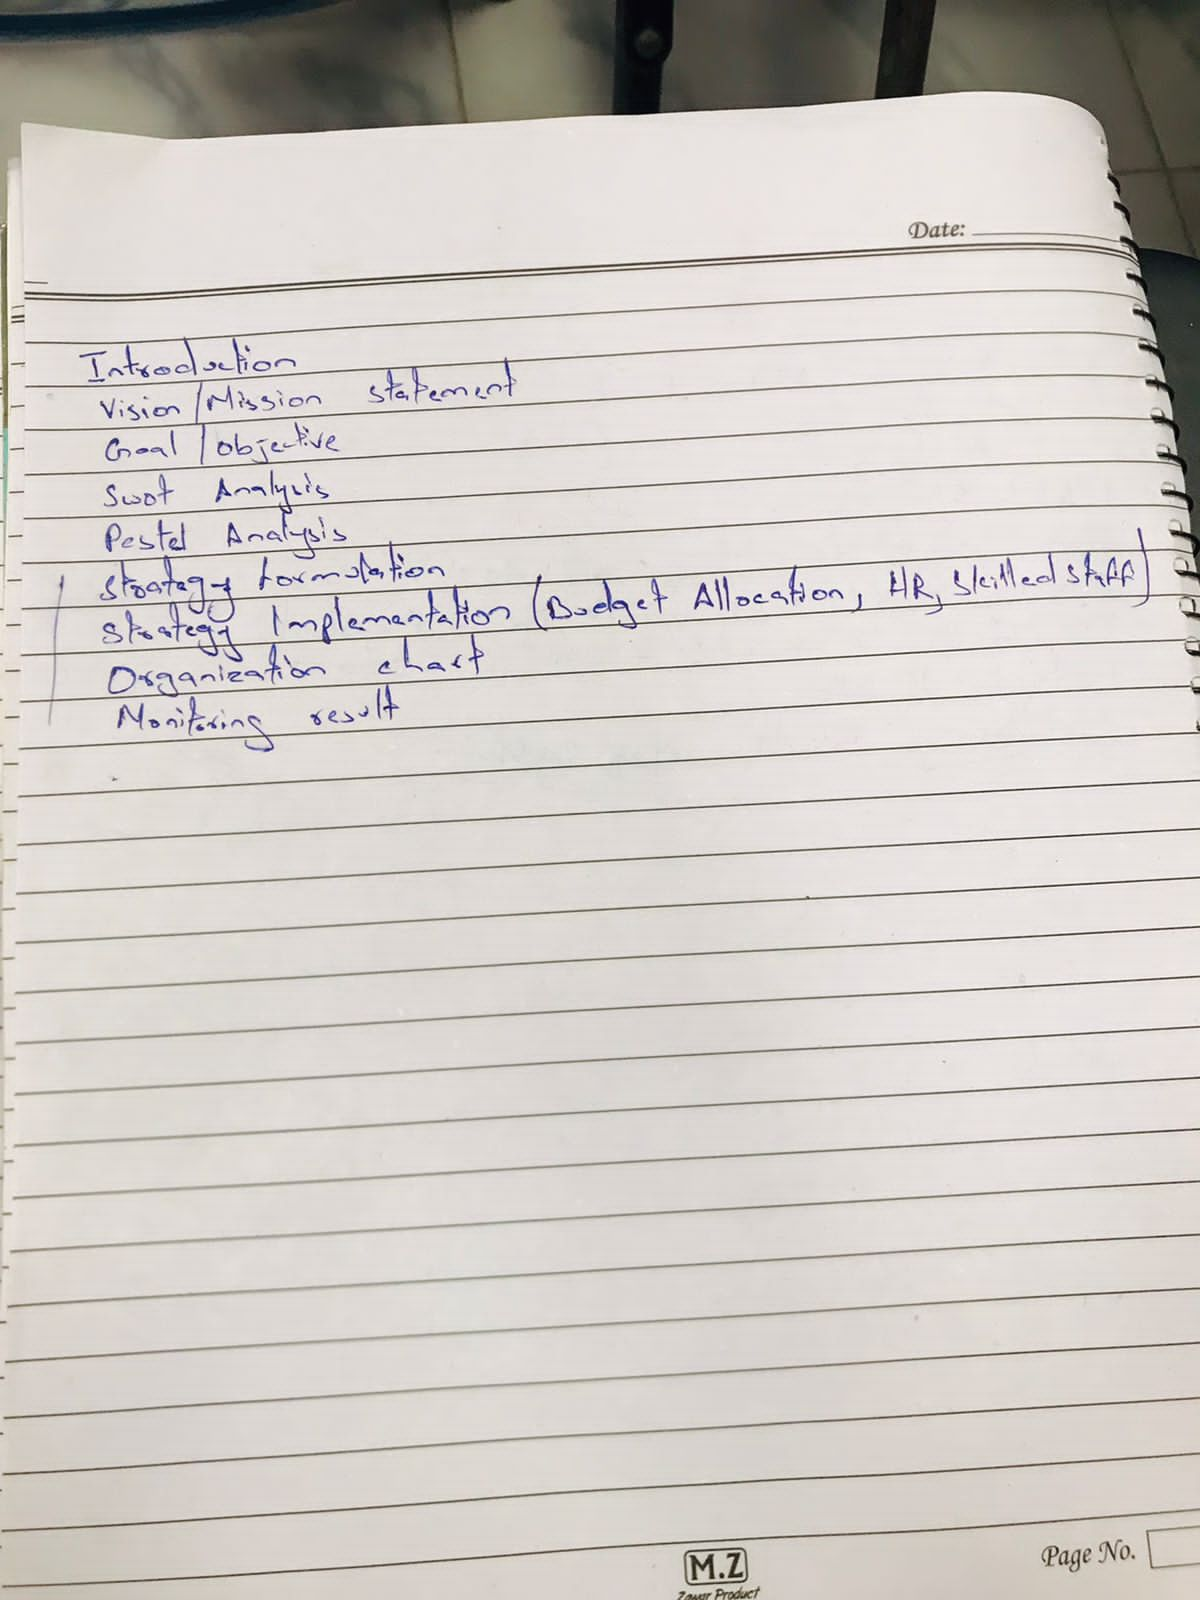 Date:
Introduction
Vision/Mission statement
Goal/objective
Swot Analysis
Pestel Analysis
Strategy formulation
Strategy Implementation (Budget Allocation, HR, Skilled Staff)
Organization chart
Monitoring result
Page No.
M.Z
Zawar Product